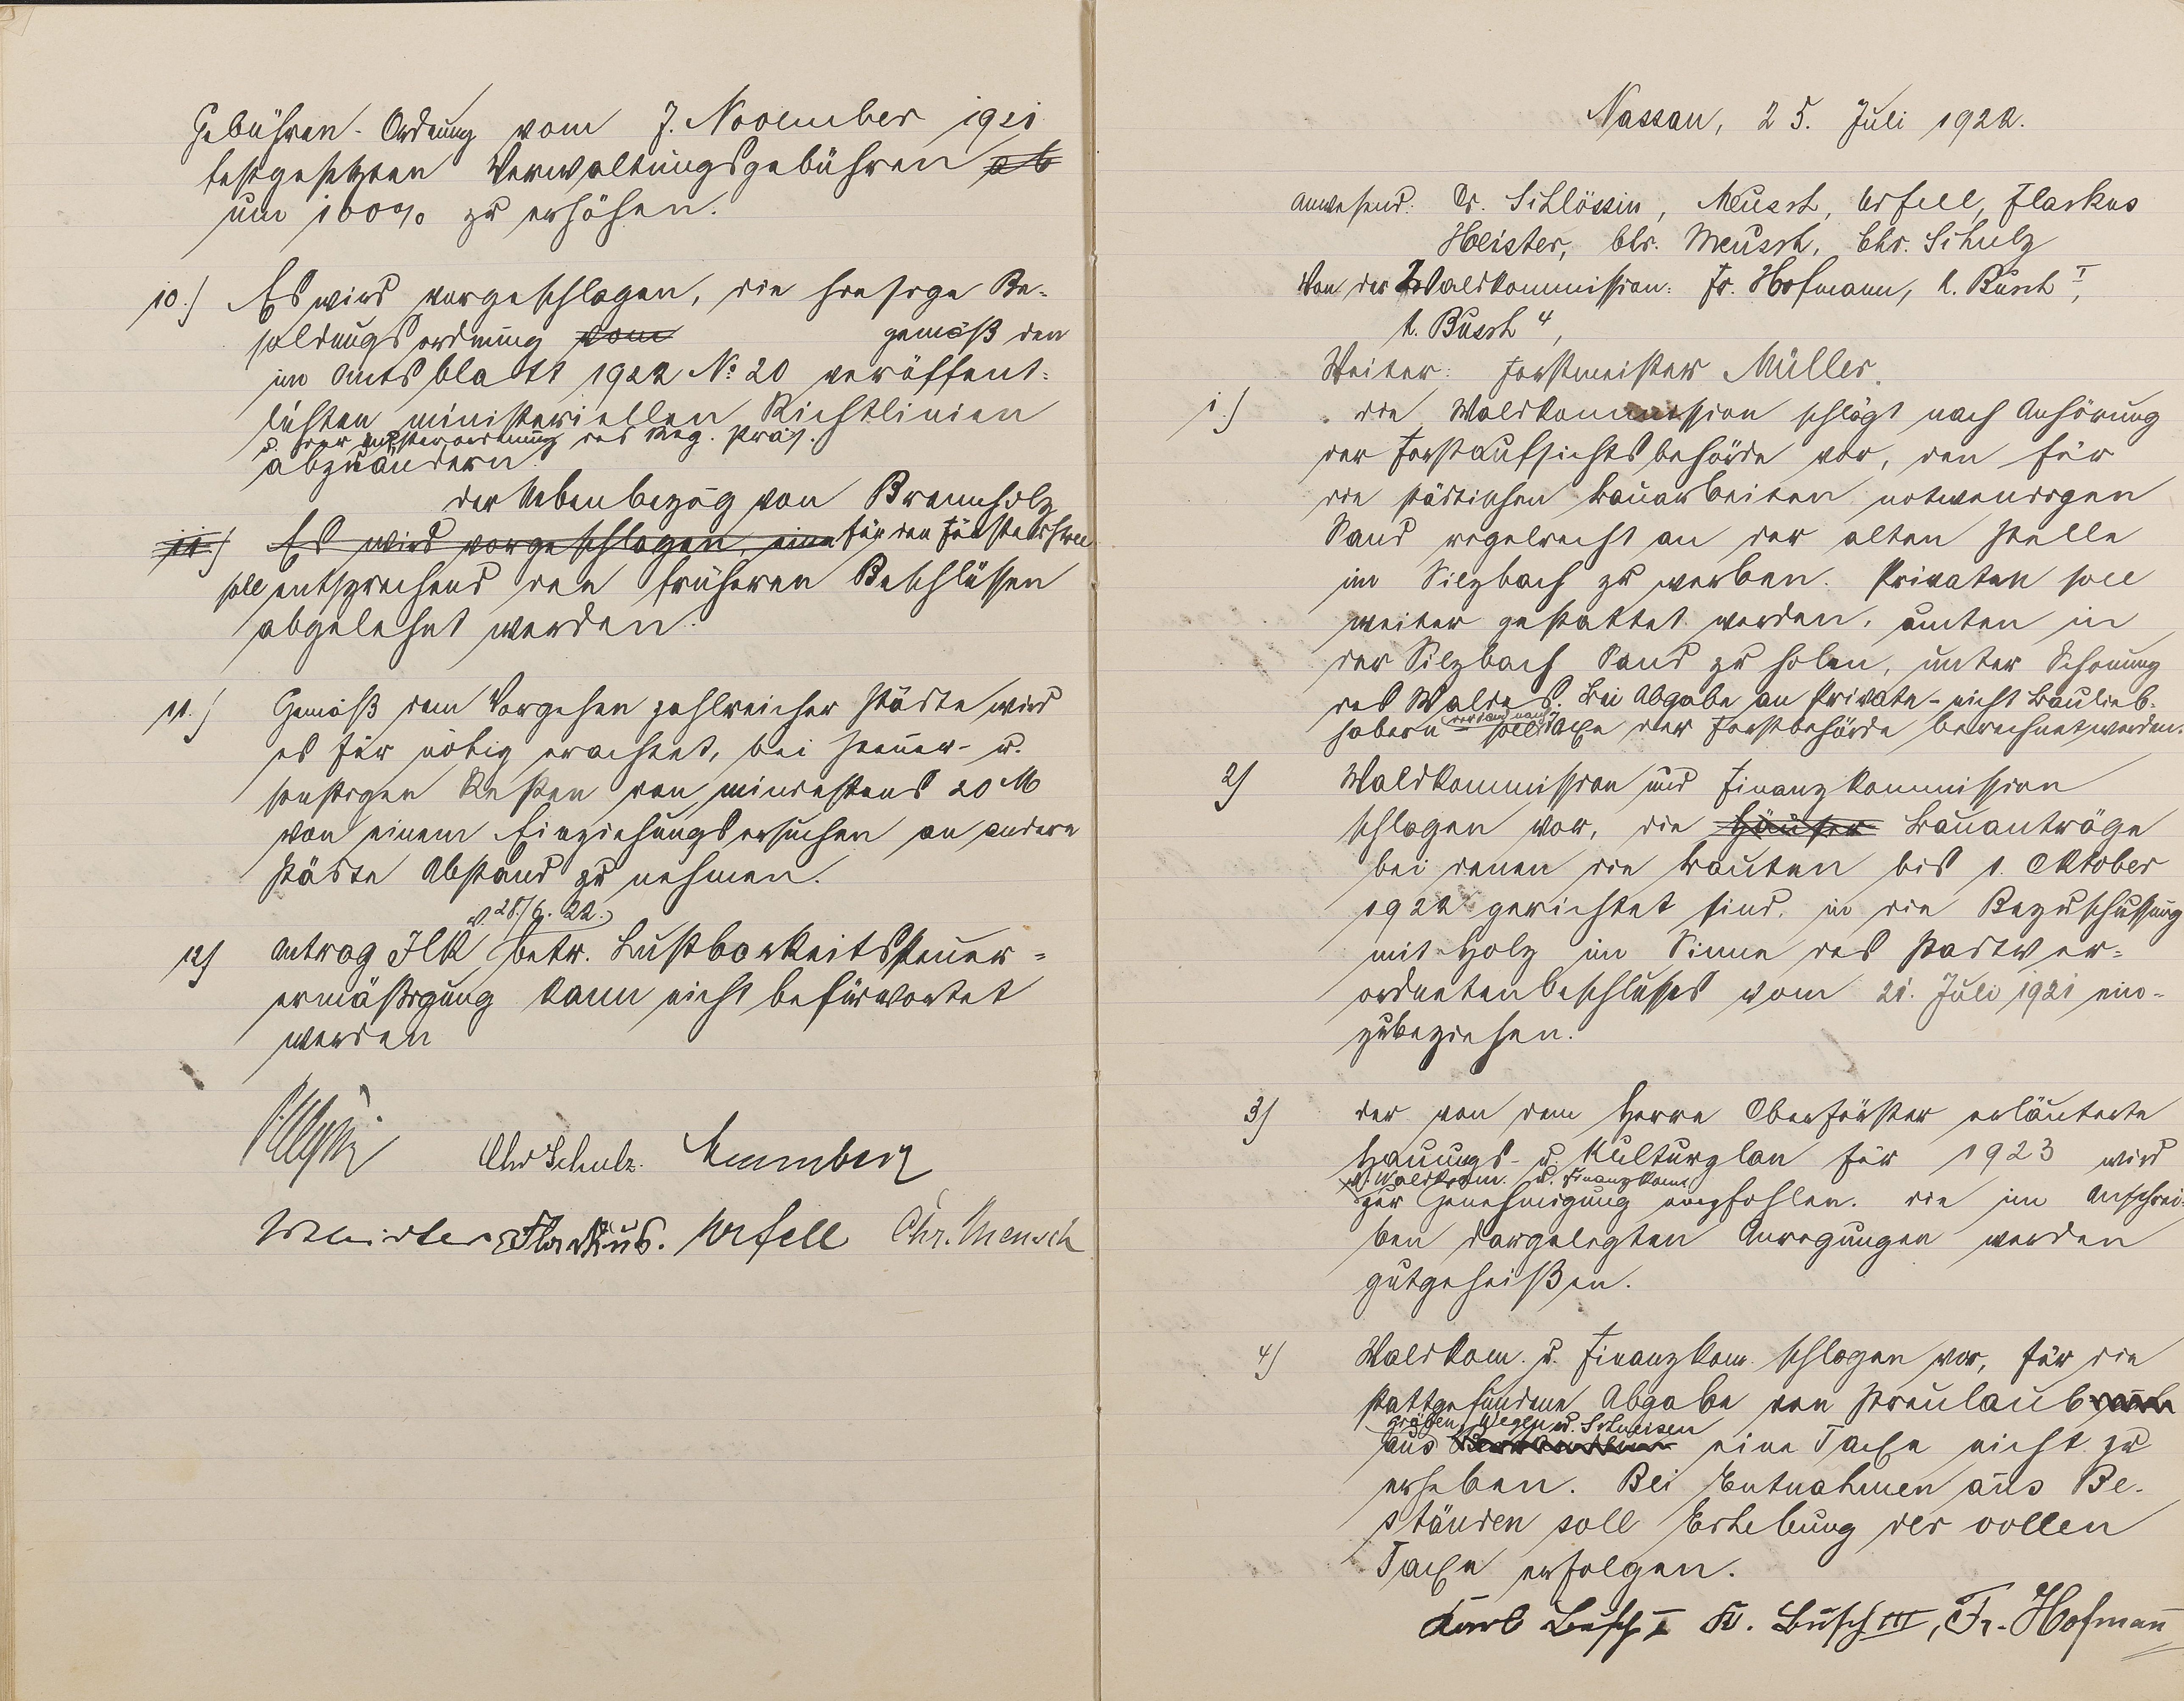 Gebühren-Ordnung vom 7. November 1921
festgesetzten Verwaltungsgebühren ab
um 100% zu erhöhen.
10.) Es wird vorgeschlagen, die hiesige Be-
soldungsordnung vom gemäß den
im Amtsblatt 1922 No 20 veröffent-
lichten ministeriellen Richtlinien
u. der Musterordnung des Reg. Präs.
abzuändern.
der Nebenbezug von Brennholz
11.) Es wird vorgeschlagen, eine für den Förster
soll entsprechend den früheren Beschlüssen
abgelehnt werden.
11.) Gemäß dem Vorgehen zahlreicher Städte wird
es für nötig erachtet, bei Steuer- u.
sonstigen Resten von mindestens 20 M
von einem Einziehungsersuchen an andere
Städte Abstand zu nehmen.
v. 28./6. 22.
12) Antrag Ilk betr. Lustbarkeitssteuer-
ermäßigung kann nicht befürwortet
werden
Chr Schulz.
Flaskus. Urfell Chr. Meusch
Nassau, 25. Juli 1922.
Anwesend: Dr. Schlössin, Meusch, Urfell, Flaskus
Meister, Chr. Meusch, Chr. Schulz
Von der Waldkommission: Fr. Hofmann, K. Busch I,
K. Busch 4,
Weiter: Forstmeister Müller.
1.) die Waldkommission schlägt nach Anhörung
der Forstaufsichtsbehörde vor, den für
die städtischen Bauarbeiten notwendigen
Sand regelrecht an der alten Stelle
im Silzbach zu werben. Privaten soll
weiter gestattet werden, unten in
der Silzbach Sand zu holen, unter Schonung
des Waldes. Bei Abgabe an Private - nicht Baulieb-
habern - soll Taxe der Forstbehörde berechnet werden.
2) Waldkommission und Finanzkommission
schlagen vor, die Häuser Bauanträge
bei denen die Bauten bis 1. Oktober
1922 gerichtet sind, in die Bezuschussung
mit Holz im Sinne des Stadtver-
ordnetenbeschlusses vom 21. Juli 1921 ein-
zubeziehen.
3) der von dem Herrn Oberförster erläuterte
Hauungs- u. Kulturplan für 1923 wird
v. Waldkom. u. Finanzkom.
zur Genehmigung empfohlen. die im Anschrei-
ben dargelegten Anregungen werden
gutgeheißen.
4) Waldkom. u. Finanzkom. schlagen vor, für die
stattgefundene Abgabe von Streulaub
gräben, Wegen u. Schneisen
aus eine Taxe nicht zu
erheben. Bei Entnahmen aus Be-
ständen soll Erhebung der vollen
Taxe erfolgen.
Karl Busch I K. Busch III, Fr. Hofmann